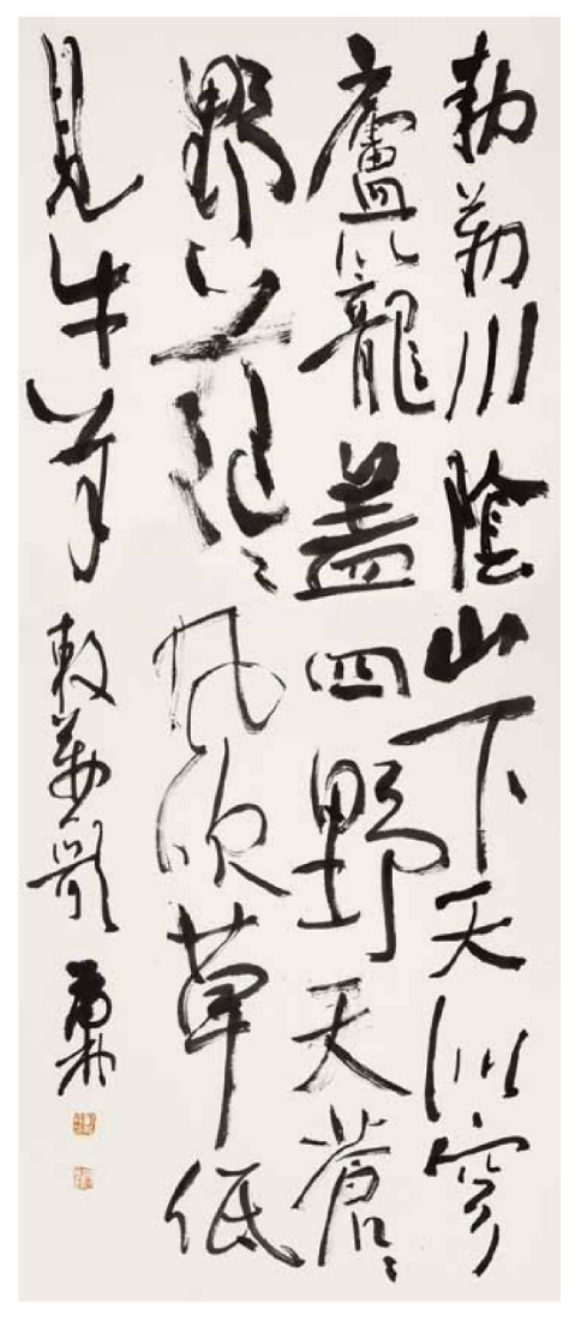 勅勒川陰山下天似穹
廬籠蓋四野天蒼々
野茫々風吹草低
見牛羊 敕勒歌